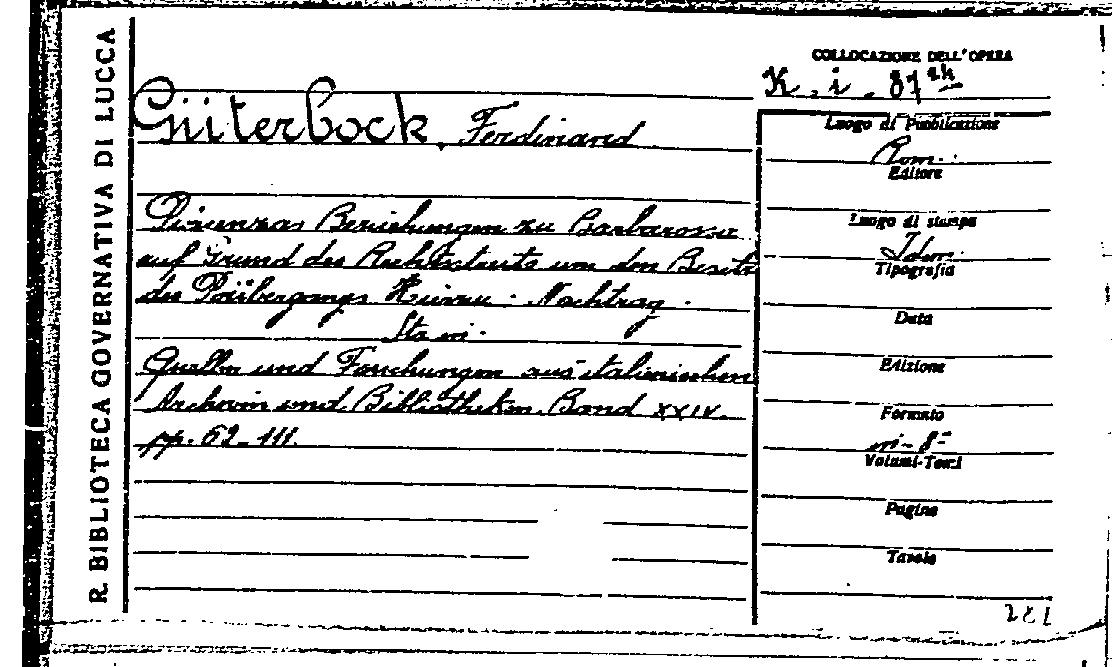 R. BIBLIOTECA GOVERNATIVA DI LUCCA
COLLOCAZIONE DELL'OPERA
K. i. 87
Güterbock, Ferdinand
Piacenzas Beziehungen zu Barbarossa
auf Grund des Rechtsstreits um den Besitz
des Poübergangs Nachtrag.
Sta in:
Quellen und Forschungen aus italienischen
Archiven und Bibliotheken. Band XXIV.
pp. 62-111.
Luogo di Pubblicazione
Rom.
Editore
Luogo di stampa
Idem.
Tipografia
Data
Edizione
Formato
in-8º
Volumi-Tomi
Pagine
Tavole